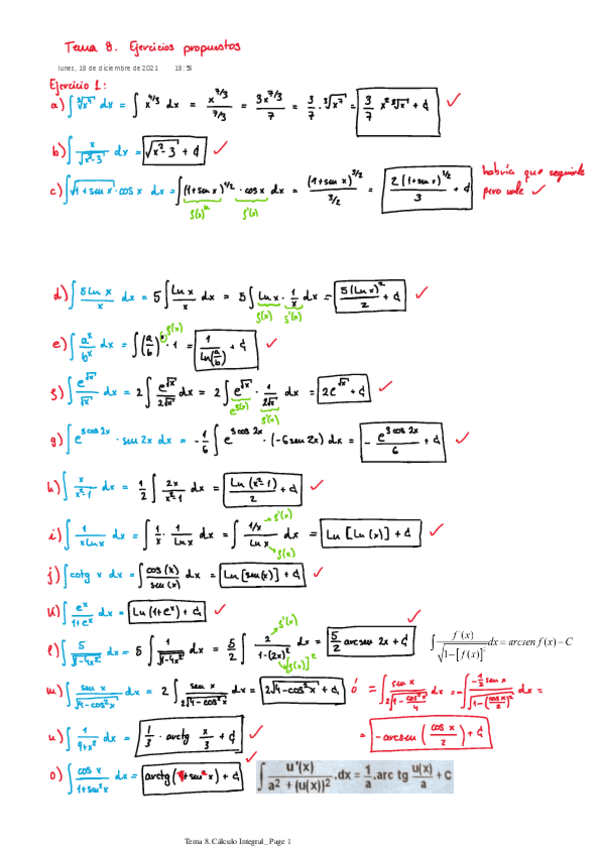 Tema 8. Ejercicios propuestos
lunes, 13 de diciembre de 2021 13:58
Ejercicio 1:
a) ∫ ∛x⁴ dx = ∫ x^{4/3} dx = x^{7/3} / 7/3 = 3x^{7/3} / 7 = 3/7 · ∛x⁷ = 3/7 x² ∛x + C ✓
b) ∫ x/√(x²-3) dx = √(x²-3) + C ✓
c) ∫ √(1+sen x) · cos x dx = ∫ (1+sen x)^{1/2} · cos x dx = (1+sen x)^{3/2} / 3/2 = 2(1+sen x)^{1/2} / 3 + C habría que seguirlo
f(x)ⁿ f'(x) pero vale ✓
d) ∫ 5 Ln x / x dx = 5 ∫ Ln x / x dx = 5 ∫ Ln x · 1/x dx = 5(Ln x)² / 2 + C ✓
f(x) f'(x)
e) ∫ aˣ/bˣ dx = ∫ (a/b)ˣ · 1 = 1 / Ln(a/b) + C ✓
f(x)
f) ∫ e^{√x}/√x dx = 2 ∫ e^{√x} / 2√x dx = 2 ∫ e^{√x} · 1/2√x dx = 2e^{√x} + C ✓
e^{f(x)} f'(x)
g) ∫ e^{3 cos 2x} · sen 2x dx = -1/6 ∫ e^{3 cos 2x} · (-6 sen 2x) dx = - e^{3 cos 2x} / 6 + C ✓
h) ∫ x/(x²-1) dx = 1/2 ∫ 2x/(x²-1) dx = Ln(x²-1) / 2 + C ✓
i) ∫ 1/(x Ln x) dx = ∫ 1/x · 1/Ln x dx = ∫ (1/x) / Ln x dx = Ln [Ln(x)] + C ✓
f'(x)
f(x)
j) ∫ cotg x dx = ∫ cos(x)/sen(x) dx = Ln [sen(x)] + C ✓
k) ∫ eˣ/(1+eˣ) dx = Ln(1+eˣ) + C ✓
l) ∫ 5/√(1-4x²) dx = 5 ∫ 1/√(1-4x²) dx = 5/2 ∫ 2 / 1-(2x)² dx = 5/2 arcsen 2x + C ✓ ∫ f'(x) / √(1-[f(x)]²) dx = arcsen f(x) – C
f'(x)
[f(x)]²
m) ∫ sen x / √(4-cos²x) dx = 2 ∫ sen x / 2√(4-cos²x) dx = 2√(4-cos²x) + C ó = ∫ sen x / 2√(1-cos²x/4) dx = -∫ (-1/2 sen x) / √(1-(cos x/2)²) dx =
= -arcsen (cos x / 2) + C
n) ∫ 1/(9+x²) dx = 1/3 · arctg x/3 + C ✓
o) ∫ cos x / (1+sen²x) dx = arctg (sen x) + C ✓ ∫ u'(x) / a² + (u(x))² .dx = 1/a .arc tg u(x)/a + C
Tema 8. Cálculo Integral_ Page 1